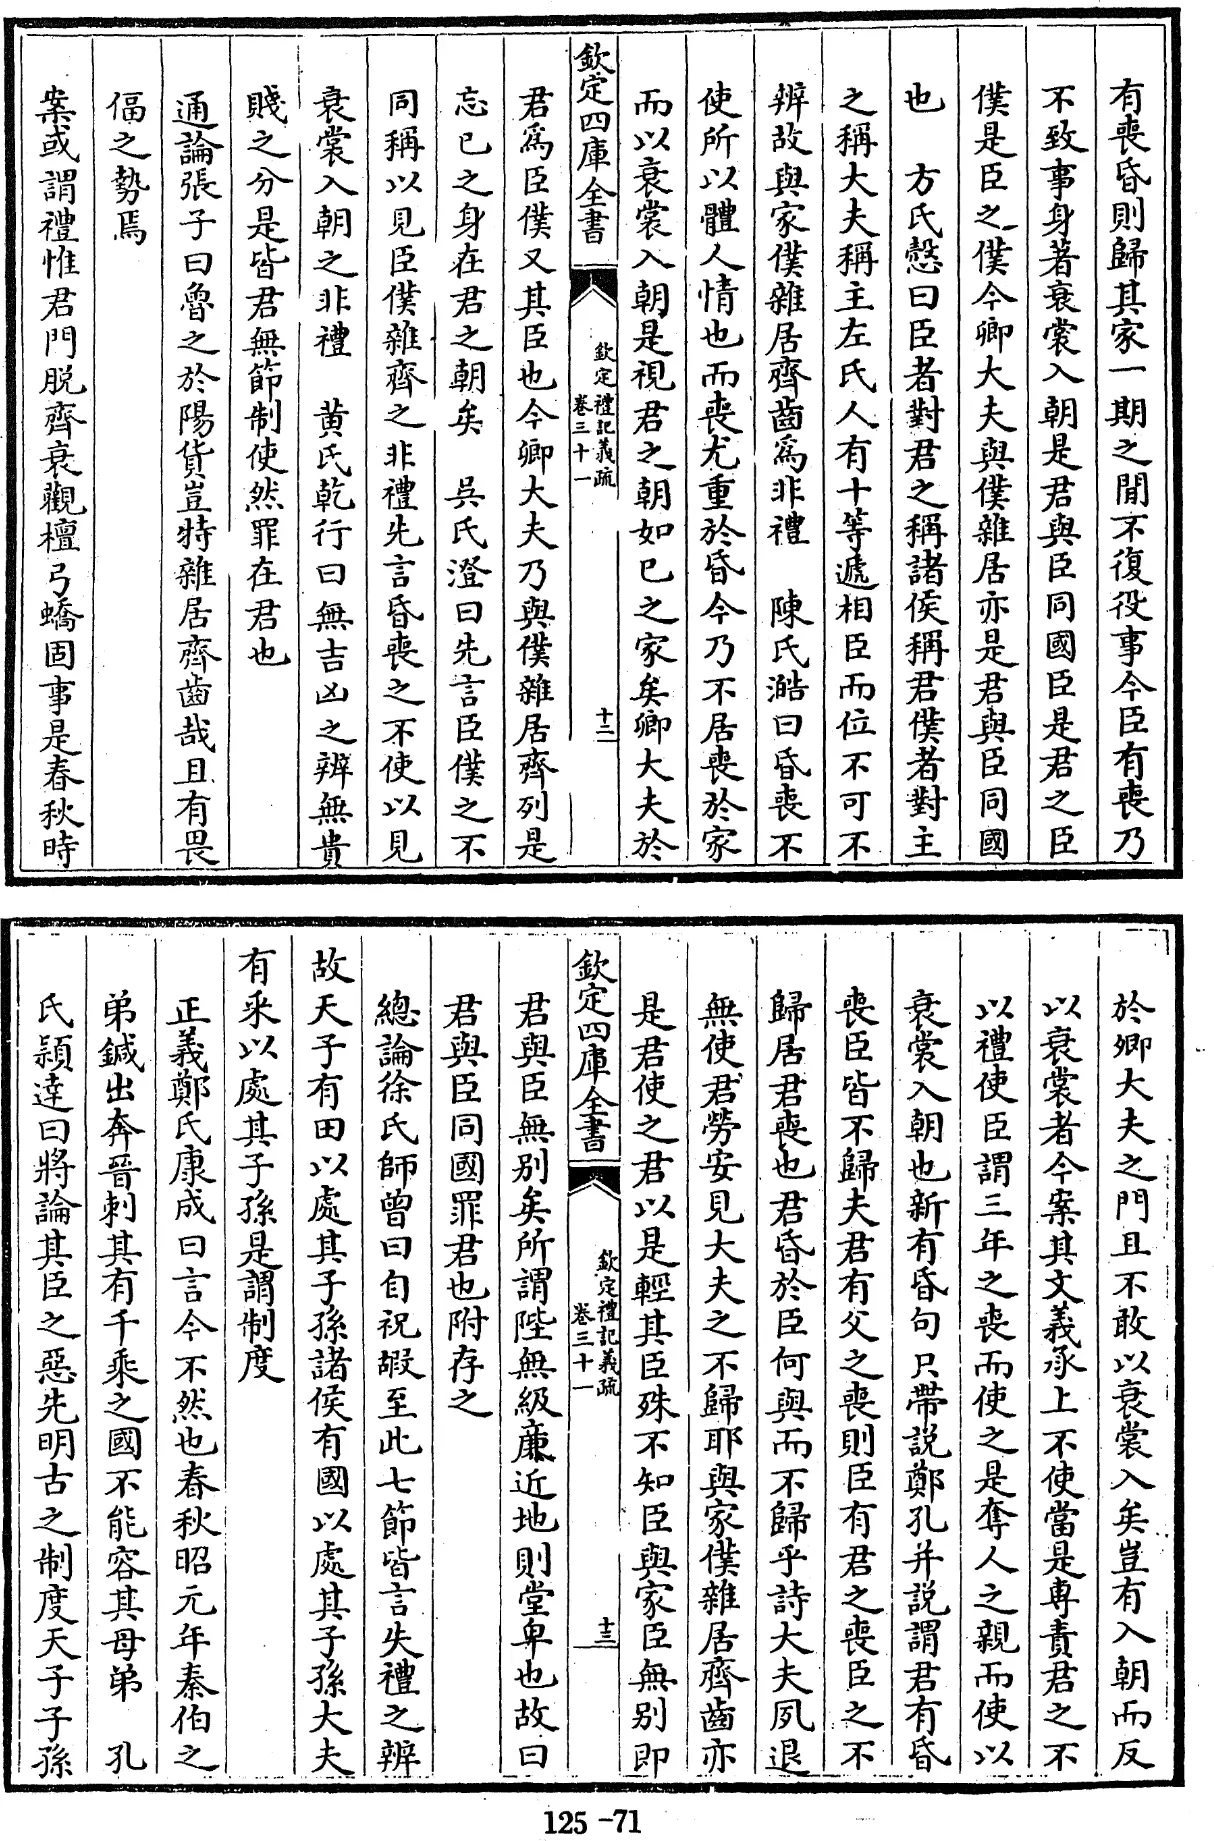 有喪昏則歸其家一期之閒不復役事今臣有喪乃
不致事身著衰裳入朝是君與臣同國臣是君之臣
僕是臣之僕今卿大夫與僕雜居亦是君與臣同國
也　方氏慤曰臣者對君之稱諸侯稱君僕者對主
之稱大夫稱主左氏人有十等遞相臣而位不可不
辨故與家僕雜居齊齒爲非禮　陳氏澔曰昏喪不
使所以體人情也而喪尤重於昏今乃不居喪於家
而以衰裳入朝是視君之朝如已之家矣卿大夫於
欽定四庫全書
欽定禮記義疏
卷三十一
十二
君爲臣僕又其臣也今卿大夫乃與僕雜居齊列是
忘已之身在君之朝矣　吳氏澄曰先言臣僕之不
同稱以見臣僕雜齊之非禮先言昏喪之不使以見
衰裳入朝之非禮　黃氏乾行曰無吉凶之辨無貴
賤之分是皆君無節制使然罪在君也
通論張子曰魯之於陽貨豈特雜居齊齒哉且有畏
偪之勢焉
案或謂禮惟君門脱齊衰觀檀弓蟜固事是春秋時
於卿大夫之門且不敢以衰裳入矣豈有入朝而反
以衰裳者今案其文義承上不使當是專責君之不
以禮使臣謂三年之喪而使之是奪人之親而使以
衰裳入朝也新有昏句只帶説鄭孔并説謂君有昏
喪臣皆不歸夫君有父之喪則臣有君之喪臣之不
歸居君喪也君昏於臣何與而不歸乎詩大夫夙退
無使君勞安見大夫之不歸耶與家僕雜居齊齒亦
是君使之君以是輕其臣殊不知臣與家臣無别即
欽定四庫全書
欽定禮記義疏
卷三十一
十三
君與臣無别矣所謂陛無級廉近地則堂卑也故曰
君與臣同國罪君也附存之
總論徐氏師曾曰自祝嘏至此七節皆言失禮之辨
故天子有田以處其子孫諸侯有國以處其子孫大夫
有采以處其子孫是謂制度
正義鄭氏康成曰言今不然也春秋昭元年秦伯之
弟鍼出奔晉刺其有千乘之國不能容其母弟　孔
氏穎達曰將論其臣之惡先明古之制度天子子孫
125-71